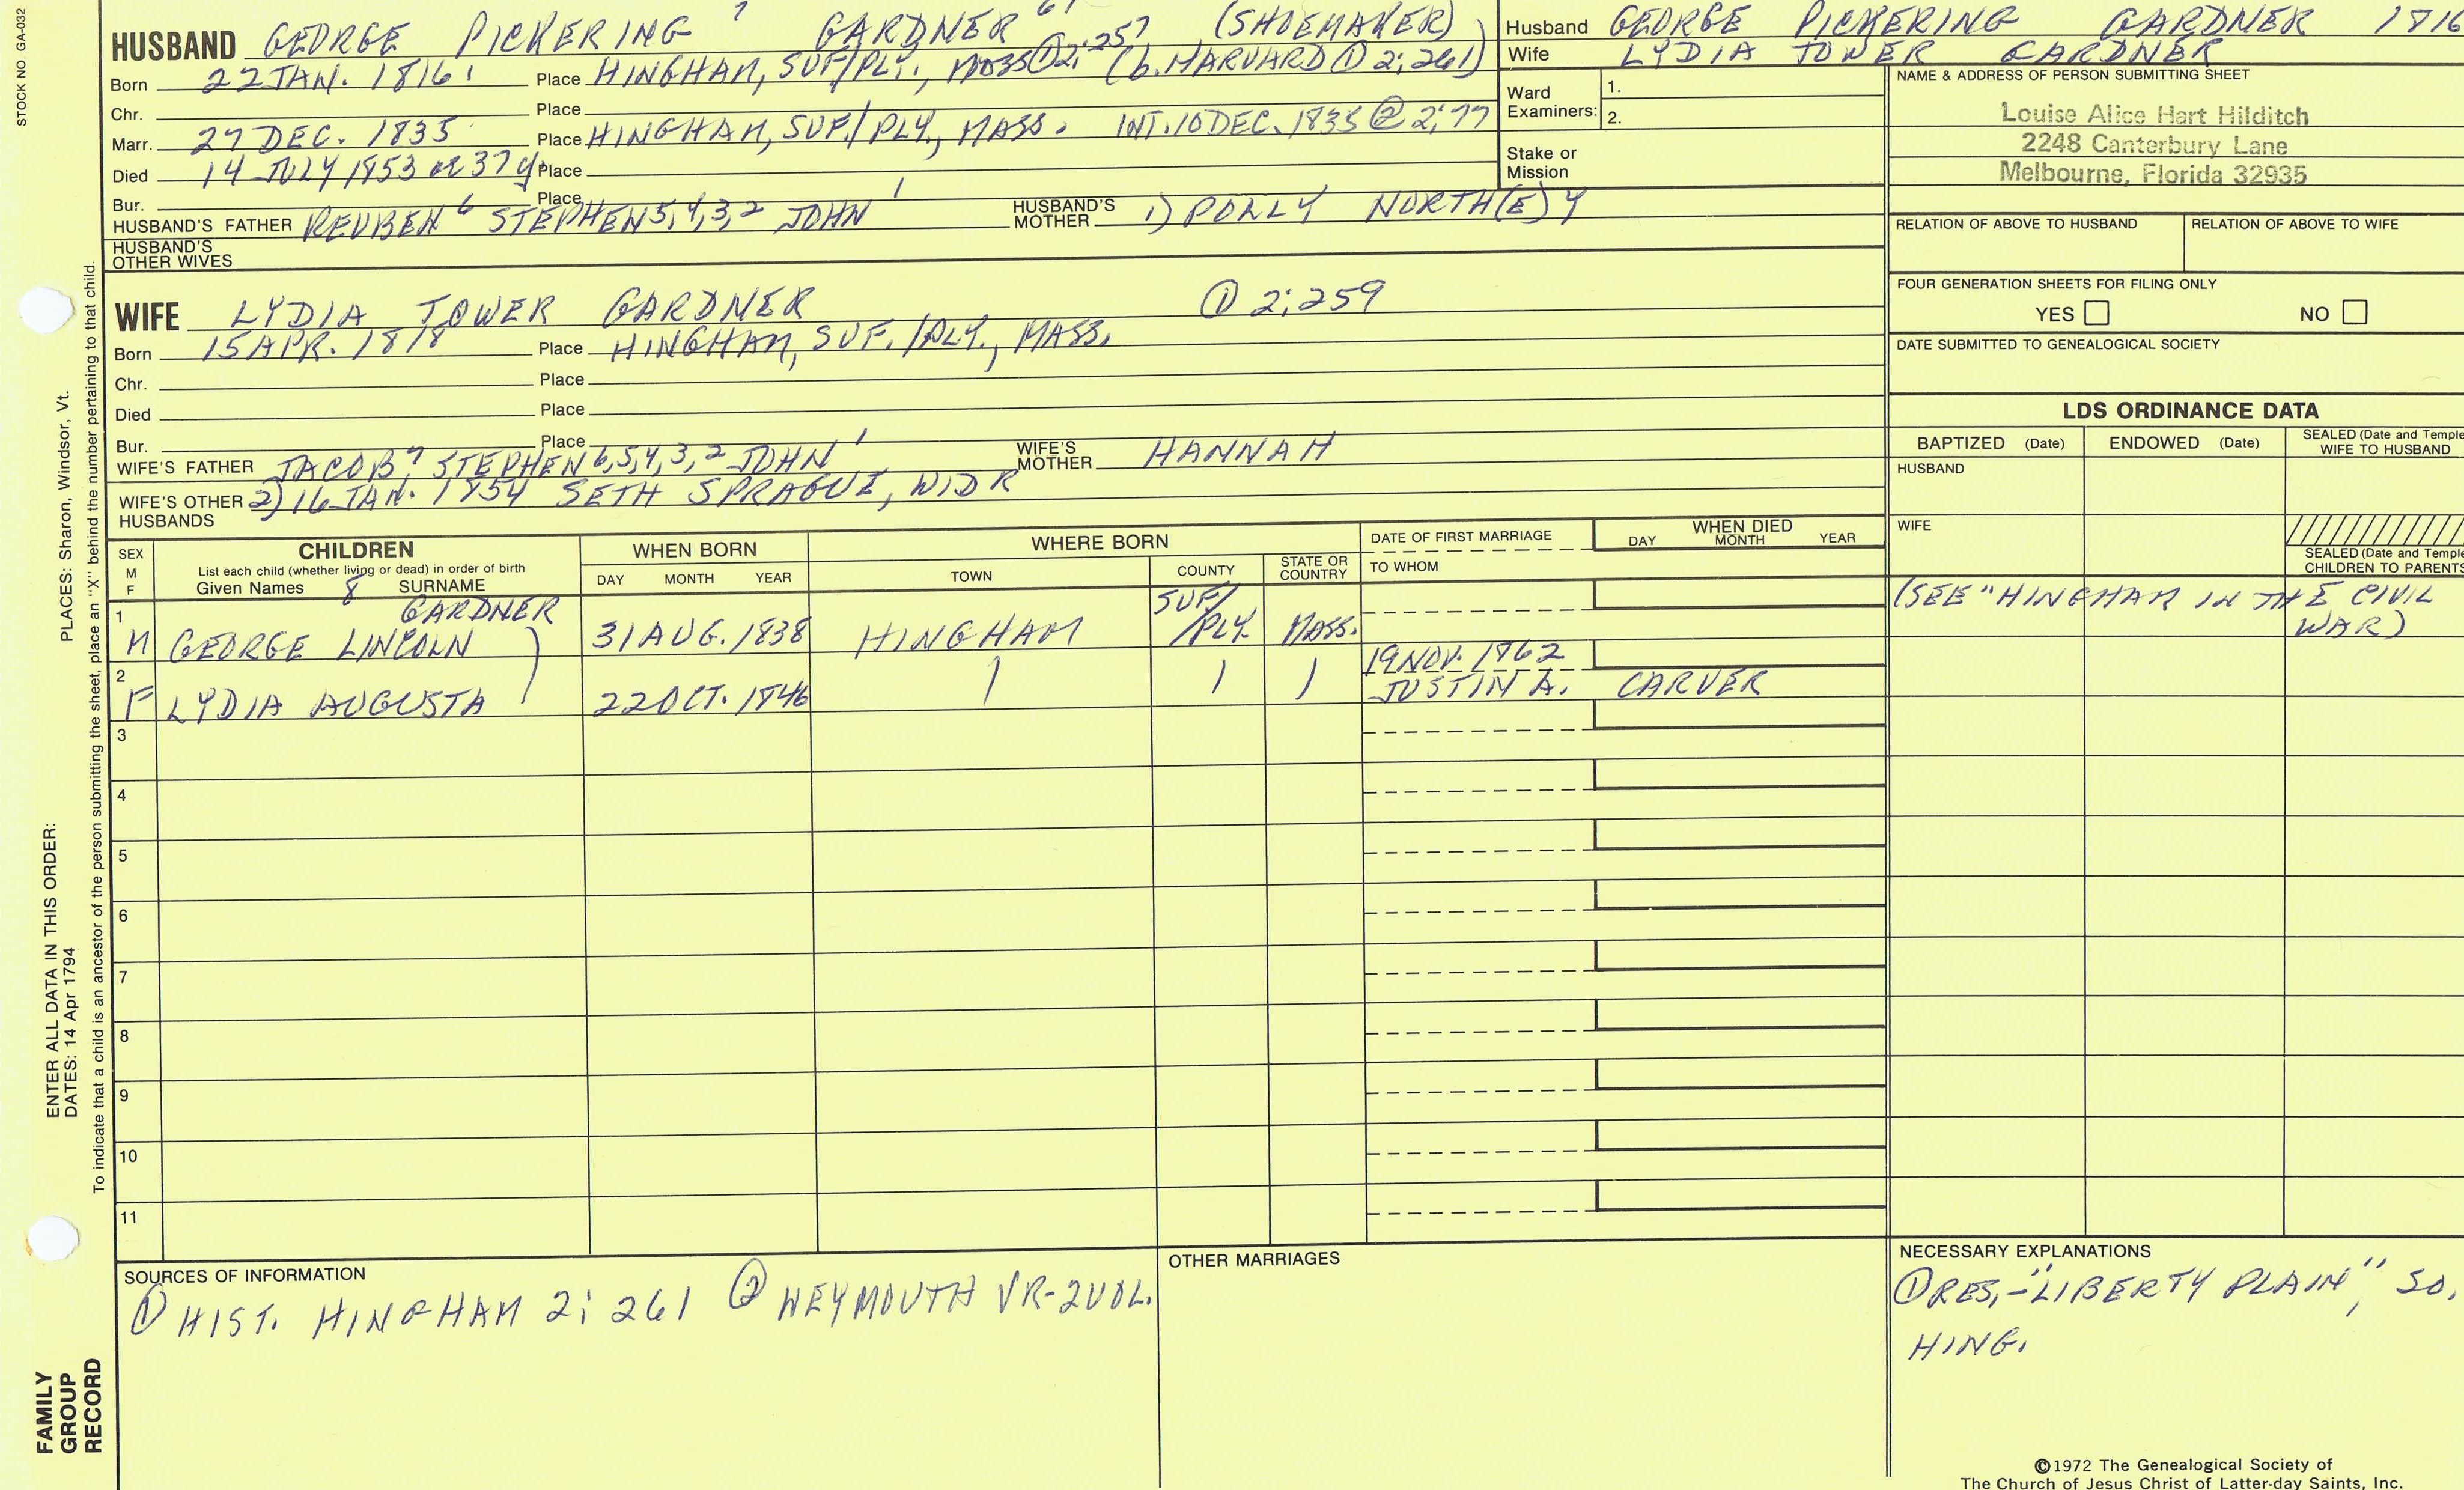 STOCK NO. GA-032
HUSBAND GEORGE PICKERING 7 GARDNER (SHOEMAKER)
Born 22 JAN. 1816 Place HINGHAM, SUF/PLY., MASS ① 2; 257 (b. HARVARD ① 2; 261)
Chr. Place
Marr. 27 DEC. 1835 Place HINGHAM, SUF./PLY., MASS. INT. 10 DEC. 1835 ② 2; 77
Died 14 JULY 1853 æ 37 y. Place
Bur. Place
HUSBAND'S FATHER REUBEN 6 STEPHEN 5, 4, 3, 2 JOHN 1 HUSBAND'S MOTHER 1) POLLY NORTH(E)Y
HUSBAND'S OTHER WIVES
WIFE LYDIA TOWER GARDNER ① 2; 259
Born 15 APR. 1818 Place HINGHAM, SUF./PLY., MASS.
Chr. Place
Died Place
Bur. Place
WIFE'S FATHER JACOB 7 STEPHEN 6, 5, 4, 3, 2 JOHN 1 WIFE'S MOTHER HANNAH
WIFE'S OTHER HUSBANDS 2) 16 JAN. 1854 SETH SPRAGUE, WIDR
Husband GEORGE PICKERING GARDNER 1816
Wife LYDIA TOWER GARDNER
Ward Examiners: 1.
2.
Stake or Mission
NAME & ADDRESS OF PERSON SUBMITTING SHEET
Louise Alice Hart Hilditch
2248 Canterbury Lane
Melbourne, Florida 32935
RELATION OF ABOVE TO HUSBAND RELATION OF ABOVE TO WIFE
FOUR GENERATION SHEETS FOR FILING ONLY
YES NO
DATE SUBMITTED TO GENEALOGICAL SOCIETY
LDS ORDINANCE DATA
BAPTIZED (Date) ENDOWED (Date) SEALED (Date and Temple WIFE TO HUSBAND
HUSBAND
WIFE
SEALED (Date and Temple CHILDREN TO PARENTS
SEX M F
CHILDREN
List each child (whether living or dead) in order of birth
Given Names 8 SURNAME
WHEN BORN
DAY MONTH YEAR
WHERE BORN
TOWN COUNTY STATE OR COUNTRY
DATE OF FIRST MARRIAGE
TO WHOM
WHEN DIED
DAY MONTH YEAR
1 M GEORGE LINCOLN GARDNER 31 AUG. 1838 HINGHAM SUF/ /PLY. MASS. (SEE "HINGHAM IN THE CIVIL WAR)
2 F LYDIA AUGUSTA 22 OCT. 1846 19 NOV. 1862 JUSTIN A. CARVER
3
4
5
6
7
8
9
10
11
SOURCES OF INFORMATION
① HIST. HINGHAM 2; 261 ② WEYMOUTH VR-2VOL.
OTHER MARRIAGES
NECESSARY EXPLANATIONS
① RES.-"LIBERTY PLAIN", SO.
HING.
©1972 The Genealogical Society of
The Church of Jesus Christ of Latter-day Saints, Inc.
PLACES: Sharon, Windsor, Vt.
To indicate that a child is an ancestor of the person submitting the sheet, place an "X" behind the number pertaining to that child.
ENTER ALL DATA IN THIS ORDER:
DATES: 14 Apr 1794
FAMILY
GROUP
RECORD